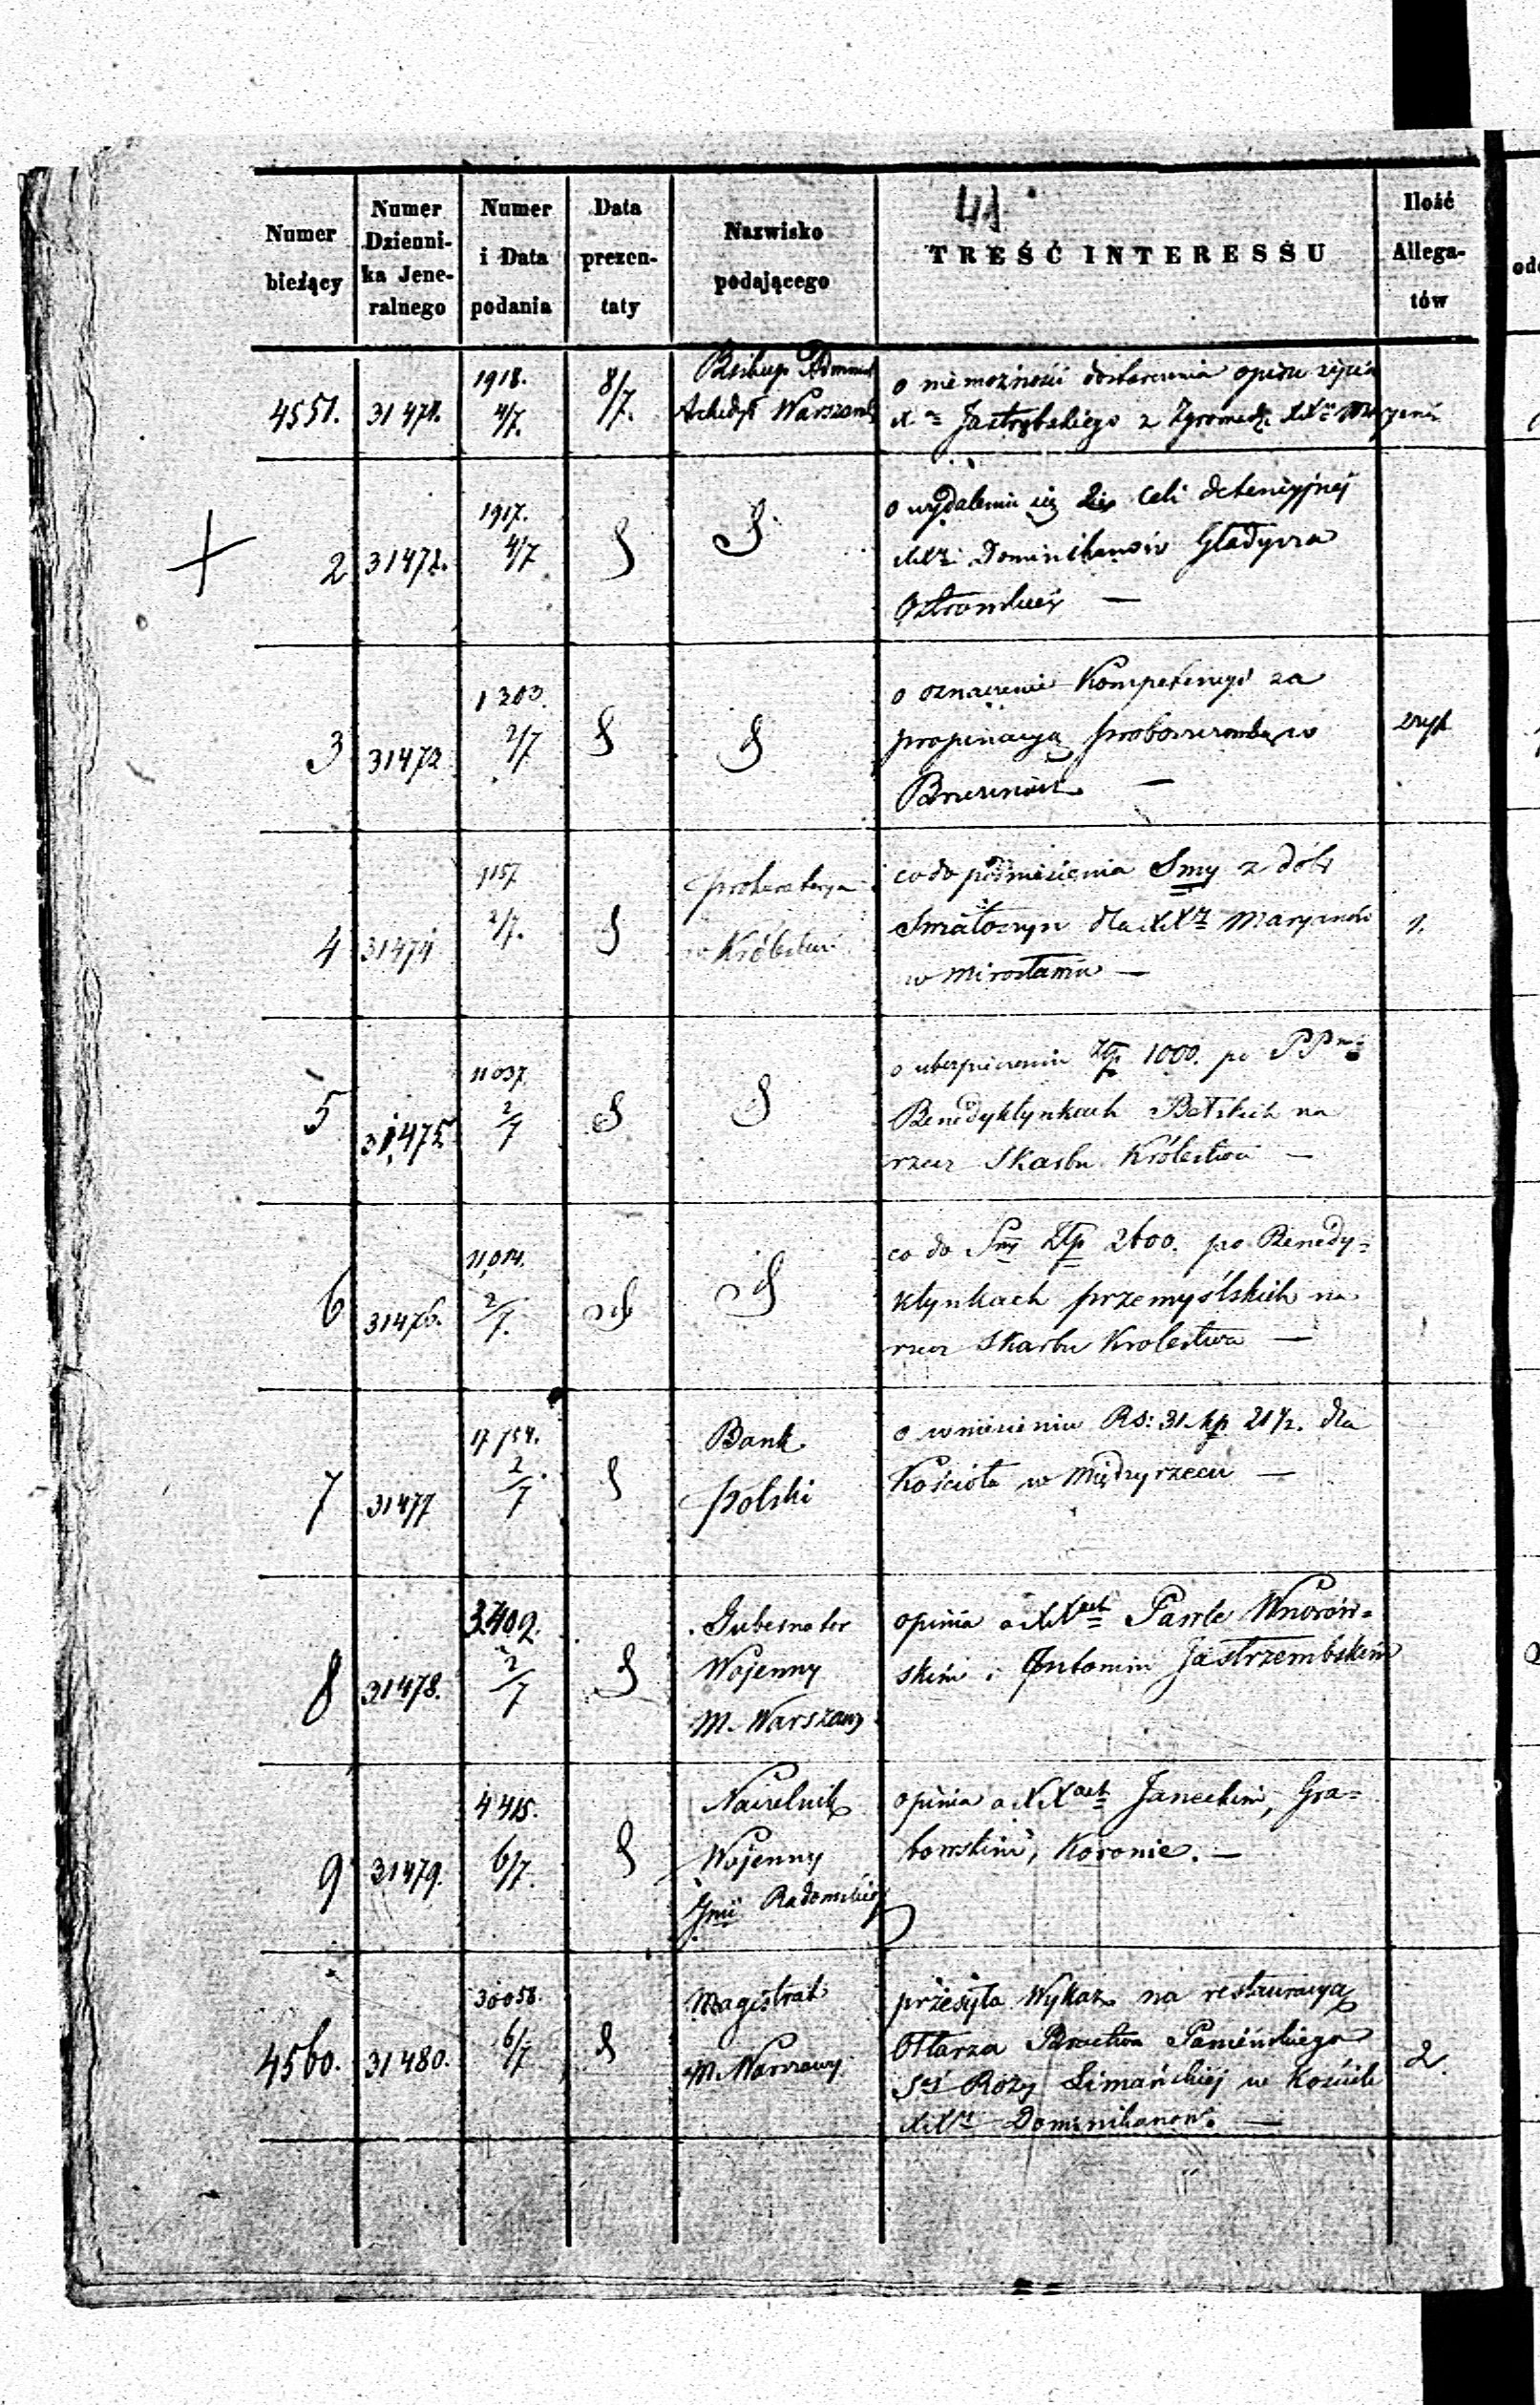 41
Numer bieżący
Numer Dzienni-ka Jene-ralnego
Numer i Data podania
Data prezen-taty
Nazwisko podającego
TREŚĆ INTERESSU
Ilość Allega-tów
4551. 31471. 1918. 4/7. 8/7.
Biskup
Archidyec Warszawski
o niemożności dostarczenia opisu życia
Xa Jastrzębskiego z Zgromadz.
2 31472. 1917. 4/7
o wydaleniu się z Celi detencyjnej
XXzi Dominikanów Gładysza
3 31473 1203. 2/7
o oznaczenie Kompetencyi za
propinacyą proboszczowską w
4 31474 1157 2/7.
Prokuratorya
w Królestwie
co do podniesienia Smy z dóbr
dla XXzy Maryanów
w Mirosławiu —
1.
5 31475 11037 2/7
o ubezpieczeniu Złp 1000. po PP
Benedyktynkach na
rzecz Skarbu Królestwa —
6 31476. 11,014. 2/7.
co do Smy Złp 2600. po Benedy=
ktynkach przemyślskich na
rzecz Skarbu Krolestwa —
7 31477 2/7
Bank
polski
o wniesieniu Rs: 31. kp 21½. dla
Kościoła w Międzyrzecu —
8 31478. 3409. 2/7
Gubernator
Wojenny
M. Warszawy
opinia o XXach Pawle Wnorow=
skim i Antonim Jastrzembskim
9 31479. 4415. 6/7.
Naczelnik
Wojenny
Gnii Radomskiej
opinia o XXach Janeckim, Gra=
bowskim, Koronie. —
4560. 31480. 30058. 6/7
Magistrat
M. Warszawy
przesyła Wykaz na restauracyą
Ołtarza Bractwa Panieńskiego
Sej Rozy Limańskiej w Kościele
XXzy Dominikanow. —
2.